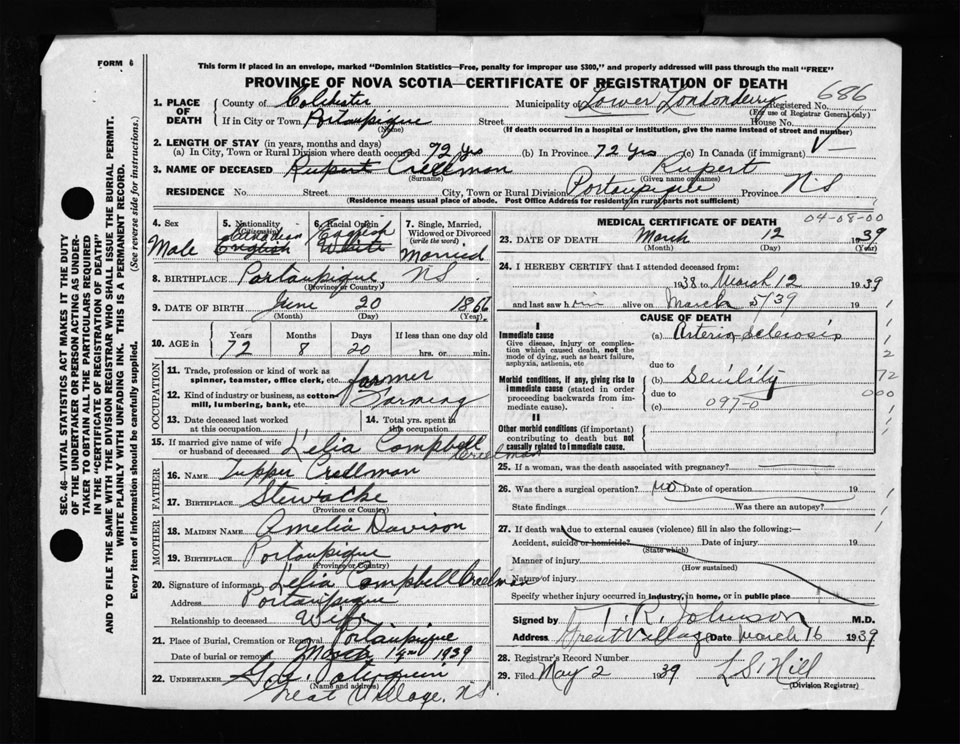 FORM 6
This form if placed in an envelope, marked "Dominion Statistics—Free, penalty for improper use $300," and properly addressed will pass through the mail "FREE"
PROVINCE OF NOVA SCOTIA—CERTIFICATE OF REGISTRATION OF DEATH
686
1. PLACE OF DEATH
County of Colchester Municipality of Lower Londonderry Registered No.
(For use of Registrar General only)
If in City or Town Portaupique Street House No.
(Name) (If death occurred in a hospital or institution, give the name instead of street and number)
2. LENGTH OF STAY (in years, months and days)
(a) In City, Town or Rural Division where death occurred 72 yrs (b) In Province 72 yrs (c) In Canada (if immigrant)
3. NAME OF DECEASED Rupert Creelman Rupert
(Surname) (Given or names)
RESIDENCE No. Street City, Town or Rural Division Portaupique Province NS
(Residence means usual place of abode. Post Office Address for residents in rural parts not sufficient)
4. Sex Male
5. Nationality (Citizenship) Canadian English
6. Racial Origin English White
7. Single, Married, Widowed or Divorced (write the word) Married
8. BIRTHPLACE Portaupique NS
(Province or Country)
9. DATE OF BIRTH June 20 1866
(Month) (Day) (Year)
10. AGE in Years Months Days If less than one day old
72 8 20 hrs. or min.
OCCUPATION
11. Trade, profession or kind of work as spinner, teamster, office clerk, etc. farmer
12. Kind of industry or business, as cotton mill, lumbering, bank, etc. Farming
13. Date deceased last worked at this occupation
14. Total yrs. spent in this occupation
15. If married give name of wife or husband of deceased Lelia Campbell Creelman
FATHER
16. NAME Tupper Creelman
17. BIRTHPLACE Stewiacke
(Province or Country)
MOTHER
18. MAIDEN NAME Amelia Davison
19. BIRTHPLACE Portaupique
(Province or Country)
20. Signature of informant Lelia Campbell Creelman
Address Portaupique
Relationship to deceased Wife
21. Place of Burial, Cremation or Removal Portaupique
Date of burial or removal March 1939
22. UNDERTAKER
(Name and address)
Great Village, N.S.
MEDICAL CERTIFICATE OF DEATH
04-08-00
23. DATE OF DEATH March 12 1939
(Month) (Day) (Year)
24. I HEREBY CERTIFY that I attended deceased from:
1938 to March 12 1939
and last saw him alive on March 5/39 19
CAUSE OF DEATH
I
Immediate cause
Give disease, injury or complication which caused death, not the mode of dying, such as heart failure, asphyxia, asthenia, etc
(a) Arterio sclerosis
due to
Morbid conditions, if any, giving rise to immediate cause (stated in order proceeding backwards from immediate cause).
(b) Senility
due to
(c) 097-0
II
Other morbid conditions (if important) contributing to death but not causally related to immediate cause.
72
000
25. If a woman, was the death associated with pregnancy?
26. Was there a surgical operation? no Date of operation 19
State findings Was there an autopsy?
27. If death was due to external causes (violence) fill in also the following:—
Accident, suicide or homicide? Date of injury 19
(State which)
Manner of injury
(How sustained)
Nature of injury
Specify whether injury occurred in industry, in home, or in public place
Signed by T. R. Johnson M.D.
Address Great Village Date March 16 1939
28. Registrar's Record Number
29. Filed May 2 1939 L.S. Hill
(Division Registrar)
SEC. 46—VITAL STATISTICS ACT MAKES IT THE DUTY
OF THE UNDERTAKER OR PERSON ACTING AS UNDERTAKER TO OBTAIN ALL THE PARTICULARS REQUIRED
IN THE "CERTIFICATE OF REGISTRATION OF DEATH"
AND TO FILE THE SAME WITH THE DIVISION REGISTRAR WHO SHALL ISSUE THE BURIAL PERMIT.
WRITE PLAINLY WITH UNFADING INK. THIS IS A PERMANENT RECORD.
Every item of information should be carefully supplied. (See reverse side for instructions.)